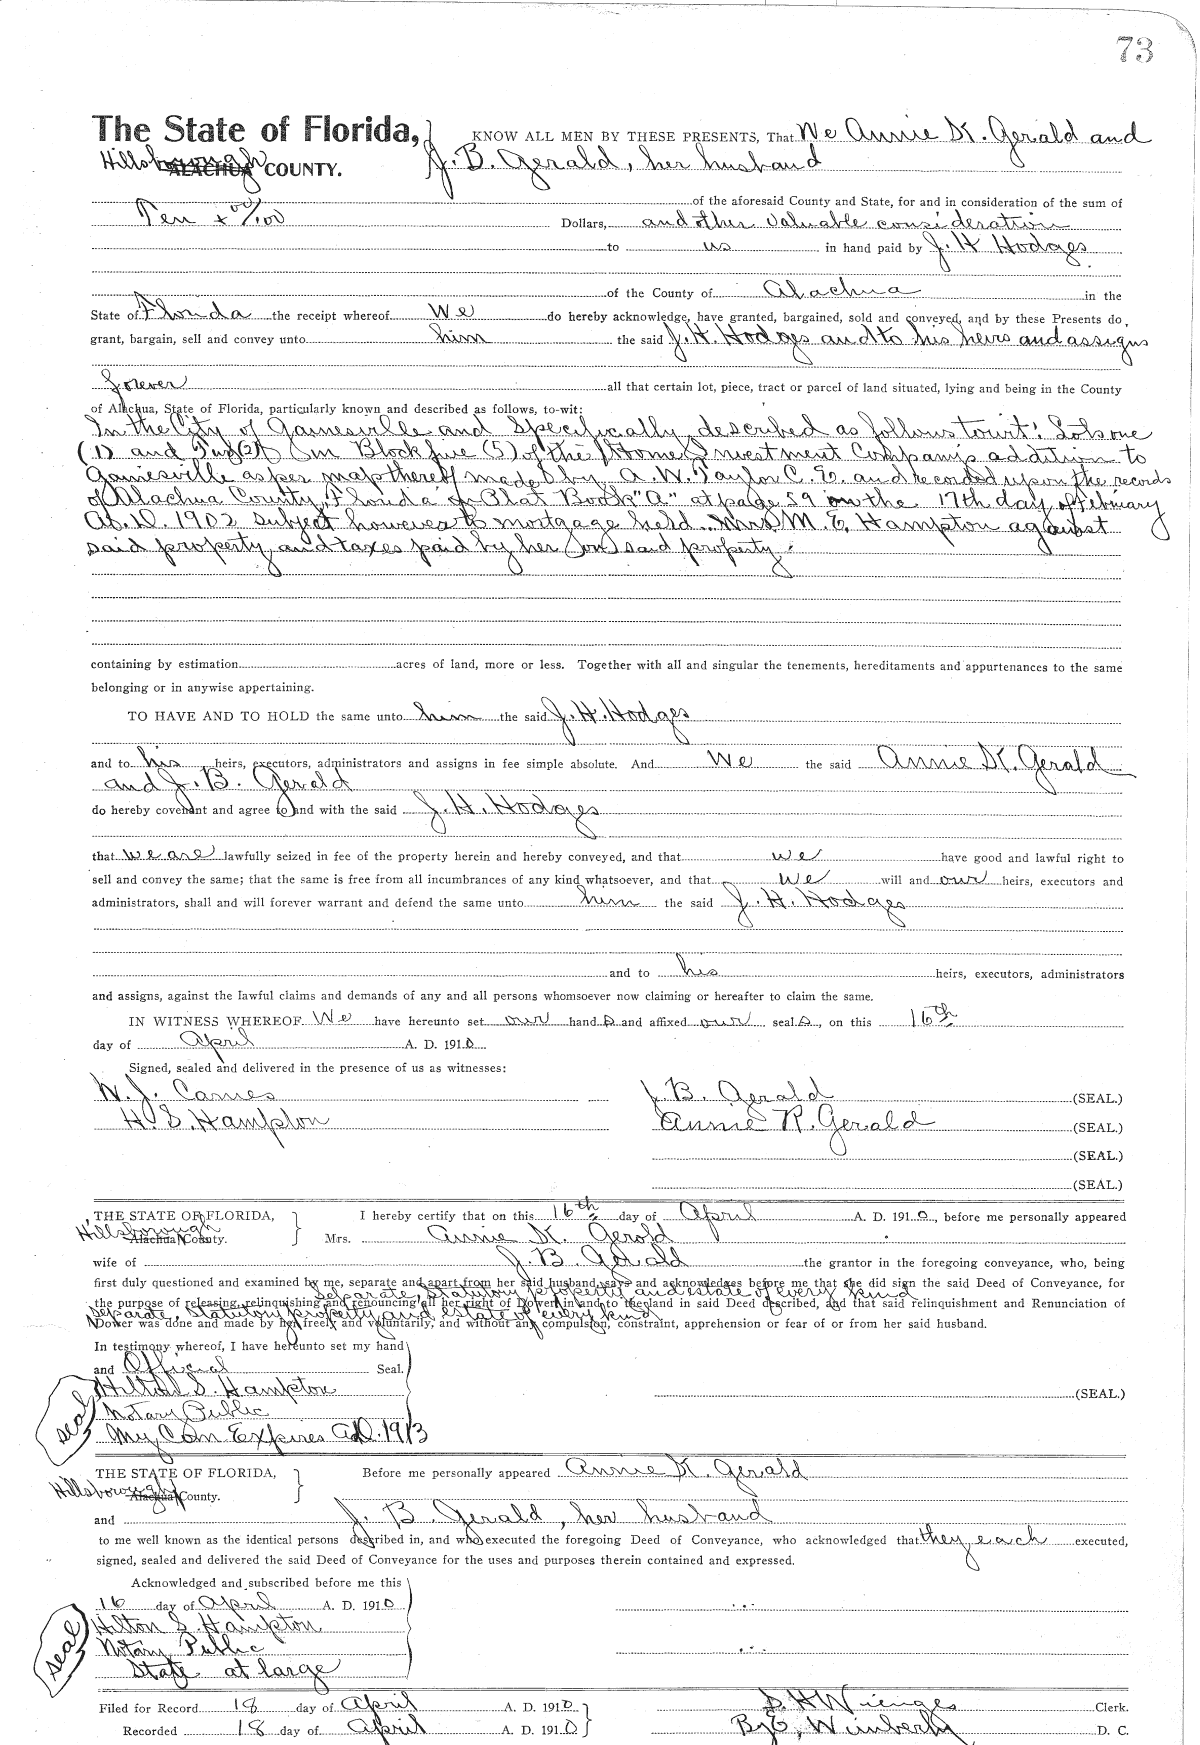 73
The State of Florida, KNOW ALL MEN BY THESE PRESENTS, That We Annie K. Gerald and
Hillsborough ALACHUA COUNTY. J. B. Gerald, her husband
of the aforesaid County and State, for and in consideration of the sum of
Ten + 00/100 Dollars, and other valuable consideration
to us in hand paid by J. H Hodges
of the County of Alachua in the
State of Florida the receipt whereof We do hereby acknowledge, have granted, bargained, sold and conveyed, and by these Presents do,
grant, bargain, sell and convey unto him the said J. H. Hodges and to his heirs and assigns
forever all that certain lot, piece, tract or parcel of land situated, lying and being in the County
of Alachua, State of Florida, particularly known and described as follows, to-wit:
In the City of Gainesville and Specifically described as follows towit: Lots one
(1) and Two (2) in Block five (5) of the Home Investment Companis addition to
Gainesville as per map thereof made by A. W. Taylor C. E. and recorded upon the records
of Alachua County, Florida in Plat Book "A" at page 59 on the 17th day of February
A. D. 1902 subject however to mortgage held Mrs M. E. Hampton against
said property and taxes paid by her on said property.
containing by estimation acres of land, more or less. Together with all and singular the tenements, hereditaments and appurtenances to the same
belonging or in anywise appertaining.
TO HAVE AND TO HOLD the same unto him the said J. H. Hodges
and to his heirs, executors, administrators and assigns in fee simple absolute. And We the said Annie K. Gerald
and J. B. Gerald
do hereby covenant and agree to and with the said J. H. Hodges
that we are lawfully seized in fee of the property herein and hereby conveyed, and that we have good and lawful right to
sell and convey the same; that the same is free from all incumbrances of any kind whatsoever, and that we will and our heirs, executors and
administrators, shall and will forever warrant and defend the same unto him the said J. H. Hodges
and to his heirs, executors, administrators
and assigns, against the lawful claims and demands of any and all persons whomsoever now claiming or hereafter to claim the same.
IN WITNESS WHEREOF We have hereunto set our hand s and affixed our seal s, on this 16th
day of April A. D. 1910
Signed, sealed and delivered in the presence of us as witnesses:
W. J. Carnes J. B. Gerald (SEAL.)
H. S. Hampton Annie K. Gerald (SEAL.)
(SEAL.)
(SEAL.)
THE STATE OF FLORIDA, I hereby certify that on this 16th day of April A. D. 1910, before me personally appeared
Hillsborough Alachua County. Mrs. Annie K. Gerold
wife of J. B. Gerald the grantor in the foregoing conveyance, who, being
first duly questioned and examined by me, separate and apart from her said husband, says and acknowledges before me that she did sign the said Deed of Conveyance, for
separate, statutory property and estate of every kind
the purpose of releasing, relinquishing and renouncing all her right of Dower in and to the land in said Deed described, and that said relinquishment and Renunciation of
separate, statutory property and estate of every kind
Dower was done and made by her freely and voluntarily, and without any compulsion, constraint, apprehension or fear of or from her said husband.
In testimony whereof, I have hereunto set my hand
and Official Seal.
Hilton S. Hampton (SEAL.)
seal Notary Public
My Com Expires A.D. 1913
THE STATE OF FLORIDA, Before me personally appeared Annie K. Gerald
Hillsborough Alachua County.
and J. B. Gerald, her husband
to me well known as the identical persons described in, and who executed the foregoing Deed of Conveyance, who acknowledged that they each executed,
signed, sealed and delivered the said Deed of Conveyance for the uses and purposes therein contained and expressed.
Acknowledged and subscribed before me this
16 day of April A. D. 1910
Hilton S. Hampton
seal Notary Public
State at large
Filed for Record 18 day of April A. D. 1910 S. H Wienges Clerk.
Recorded 18 day of April A. D. 1910 By E. Wimberly D. C.